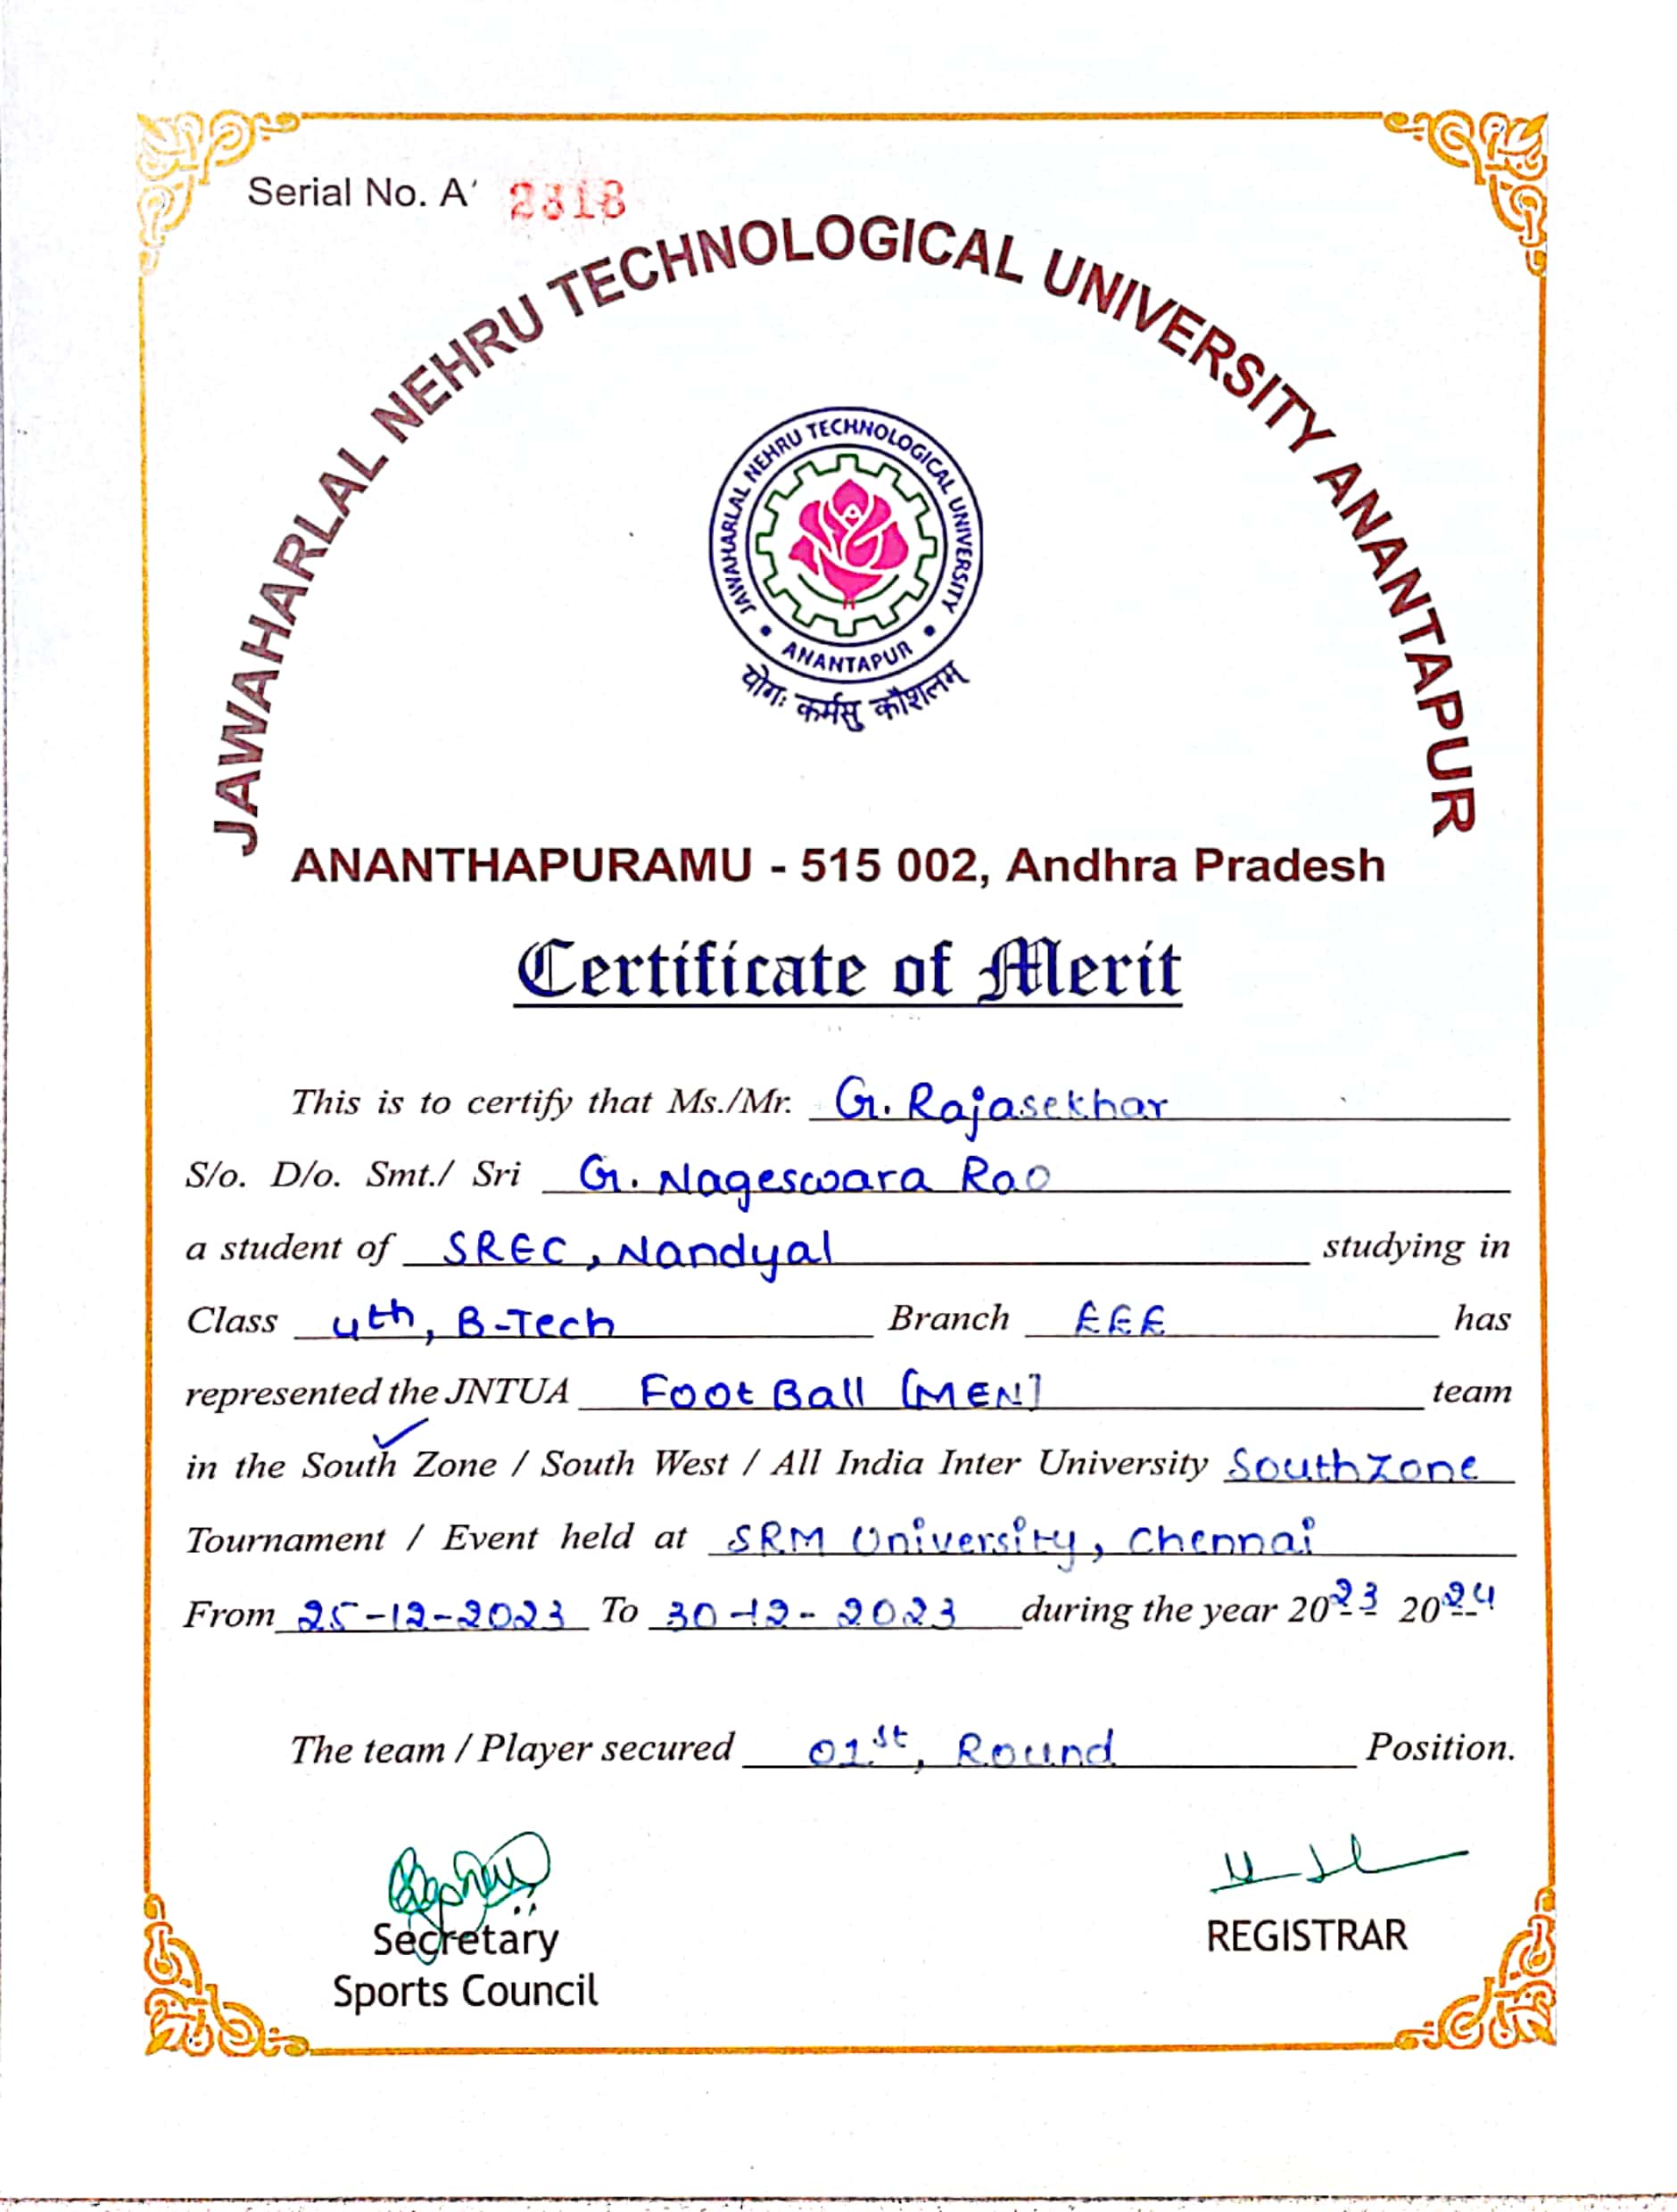 Serial No. A' 2318
JAWAHARLAL NEHRU TECHNOLOGICAL UNIVERSITY ANANTAPUR
JAWAHARLAL NEHRU TECHNOLOGICAL UNIVERSITY
• ANANTAPUR •
योगः कर्मसु कौशलम्
ANANTHAPURAMU - 515 002, Andhra Pradesh
Certificate of Merit
This is to certify that Ms./Mr. G. Rajasekhar
S/o. D/o. Smt./ Sri G. Nageswara Rao
a student of SREC, Nandyal studying in
Class 4th, B-Tech Branch EEE has
represented the JNTUA Foot Ball [MEN] team
in the South Zone / South West / All India Inter University South Zone
Tournament / Event held at SRM University, Chennai
From 25-12-2023 To 30-12-2023 during the year 2023 2024
The team / Player secured 01st, Round Position.
Secretary
Sports Council
REGISTRAR